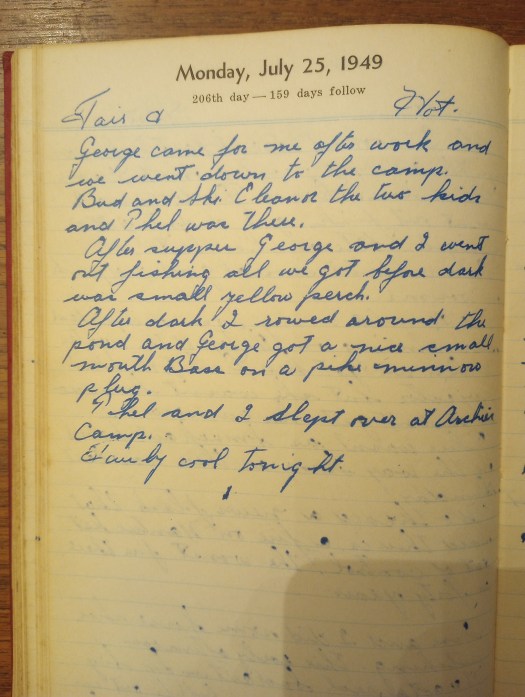 Monday, July 25, 1949
206th day — 159 days follow
Fair & Hot.
George came for me after work and
we went down to the camp.
Bud and Eleanor the two kids
and Phel was there.
After supper George and I went
out fishing all we got before dark
was small yellow perch.
After dark I rowed around the
pond and George got a nice small
mouth Bass on a pike minnow
plug.
Phel and I slept over at Archies
Camp.
cool tonight.